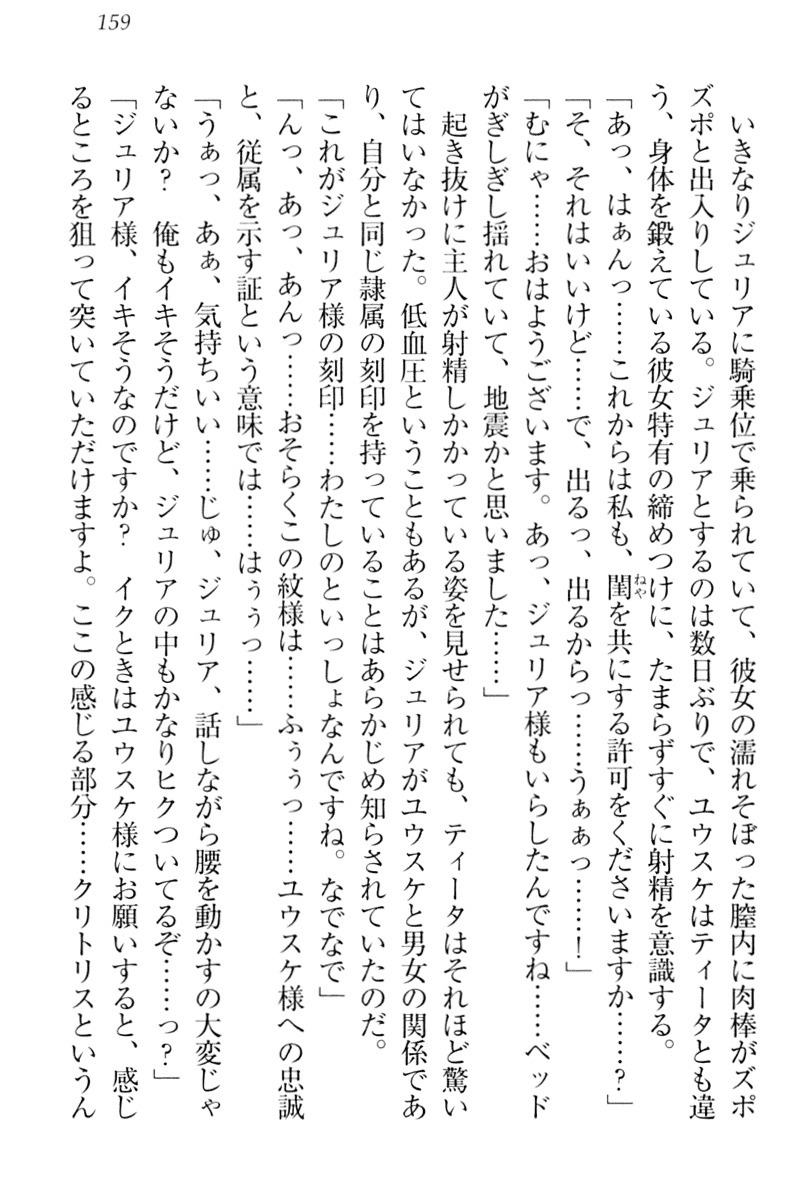 159
いきなりジュリアに騎乗位で乗られていて、彼女の濡れそぼった膣内に肉棒がズポ
ズポと出入りしている。ジュリアとするのは数日ぶりで、ユウスケはティータとも違
う、身体を鍛えている彼女特有の締めつけに、たまらずすぐに射精を意識する。
「あっ、はぁんっ……これからは私も、閨ねやを共にする許可をくださいますか……?」
「そ、それはいいけど……で、出るっ、出るからっ……うぁぁっ……!」
「むにゃ……おはようございます。あっ、ジュリア様もいらしたんですね……ベッド
がぎしぎし揺れていて、地震かと思いました……」
起き抜けに主人が射精しかかっている姿を見せられても、ティータはそれほど驚い
てはいなかった。低血圧ということもあるが、ジュリアがユウスケと男女の関係であ
り、自分と同じ隷属の刻印を持っていることはあらかじめ知らされていたのだ。
「これがジュリア様の刻印……わたしのといっしょなんですね。なでなで」
「んっ、あっ、あんっ……おそらくこの紋様は……ふぅぅっ……ユウスケ様への忠誠
と、従属を示す証という意味では……はぅぅっ……」
「うぁっ、あぁ、気持ちいい……じゅ、ジュリア、話しながら腰を動かすの大変じゃ
ないか? 俺もイキそうだけど、ジュリアの中もかなりヒクついてるぞ……っ?」
「ジュリア様、イキそうなのですか? イクときはユウスケ様にお願いすると、感じ
るところを狙って突いていただけますよ。ここの感じる部分……クリトリスというん